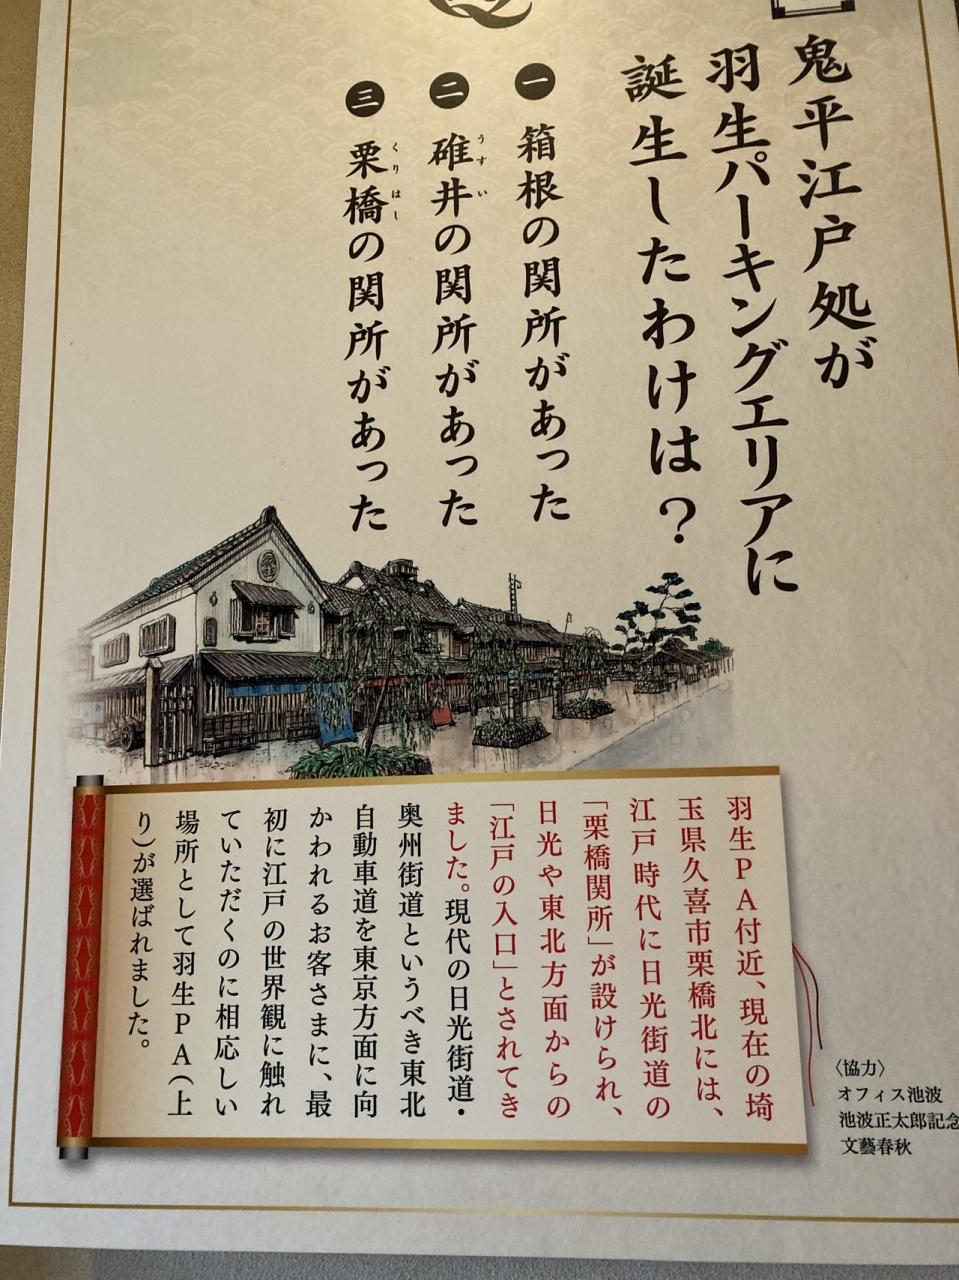 鬼平江戸処が
羽生パーキングエリアに
誕生したわけは？
一 箱根の関所があった
二 碓井の関所があった
うすい
三 栗橋の関所があった
くりはし
羽生PA付近、現在の埼
玉県久喜市栗橋北には、
江戸時代に日光街道の
「栗橋関所」が設けられ、
日光や東北方面からの
「江戸の入口」とされてき
ました。現代の日光街道・
奥州街道というべき東北
自動車道を東京方面に向
かわれるお客さまに、最
初に江戸の世界観に触れ
ていただくのに相応しい
場所として羽生PA(上
り)が選ばれました。
〈協力〉
オフィス池波
池波正太郎記念
文藝春秋